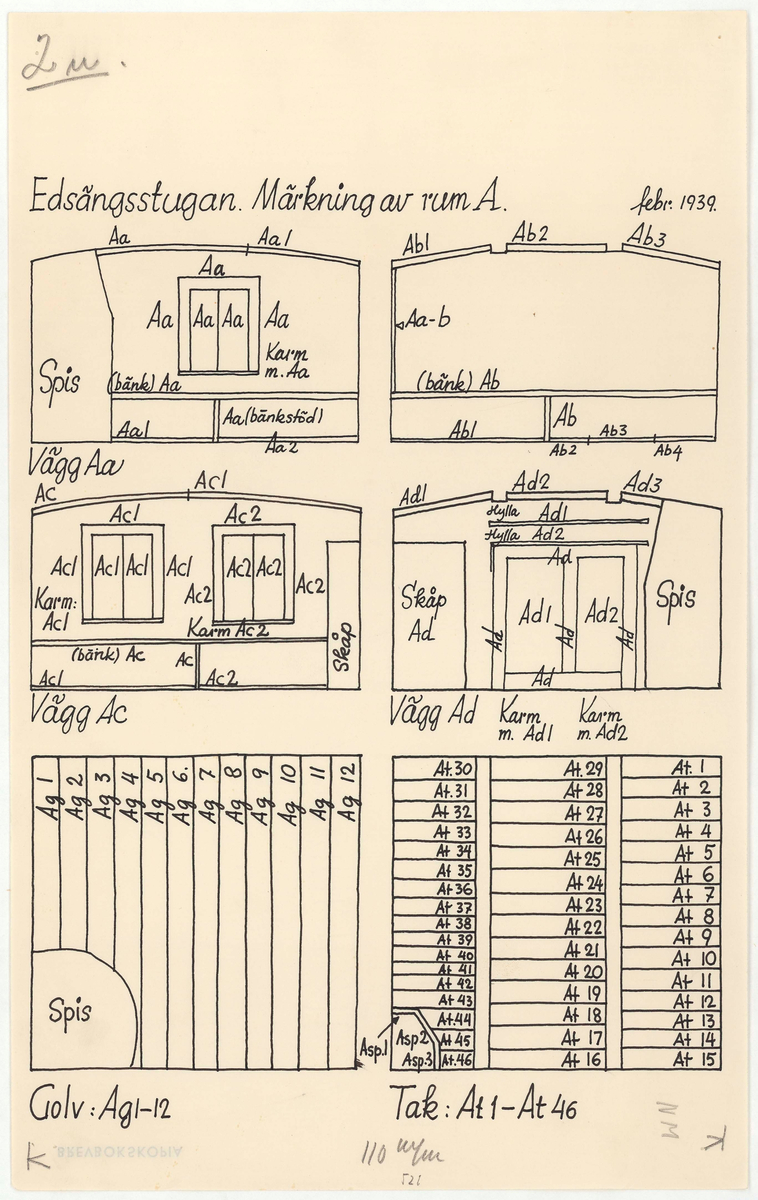 2 u.
Edsängsstugan. Märkning av rum A.
febr. 1939.
Aa
Aa1
Aa
Aa
Aa
Aa
Aa
Karm
m. Aa
Spis
(bänk) Aa
Aa1
Aa (bänkstöd)
Aa2
Vägg Aa
Ab1
Ab2
Ab3
Aa-b
(bänk) Ab
Ab1
Ab
Ab2
Ab3
Ab4
Ac
Ac1
Ac1
Ac2
Ac1
Ac1
Ac1
Ac1
Ac2
Ac2
Ac2
Ac2
Karm:
Ac1
Karm Ac2
Skåp
(bänk) Ac
Ac
Ac1
Ac2
Vägg Ac
Ad1
Ad2
Ad3
Hylla Ad1
Hylla Ad2
Ad
Skåp
Ad
Ad
Ad1
Ad
Ad2
Ad
Spis
Ad
Vägg Ad
Karm
m. Ad1
Karm
m. Ad2
Ag 1
Ag 2
Ag 3
Ag 4
Ag 5
Ag 6.
Ag 7
Ag 8
Ag 9
Ag 10
Ag 11
Ag 12
Spis
Golv: Ag1-12
At.30
At.31
At 32
At 33
At 34
At 35
At 36
At 37
At 38
At 39
At 40
At 41
At 42
At 43
At.44
At 45
At.46
Asp.1
Asp2
Asp.3
At. 29
At 28
At 27
At 26
At 25
At 24
At 23
At 22
At 21
At 20
At 19
At 18
At 17
At 16
At. 1
At 2
At 3
At 4
At 5
At 6
At 7
At 8
At 9
At 10
At 11
At 12
At 13
At 14
At 15
Tak: At1-At 46
BREVBOKSKOPIA
110
NM